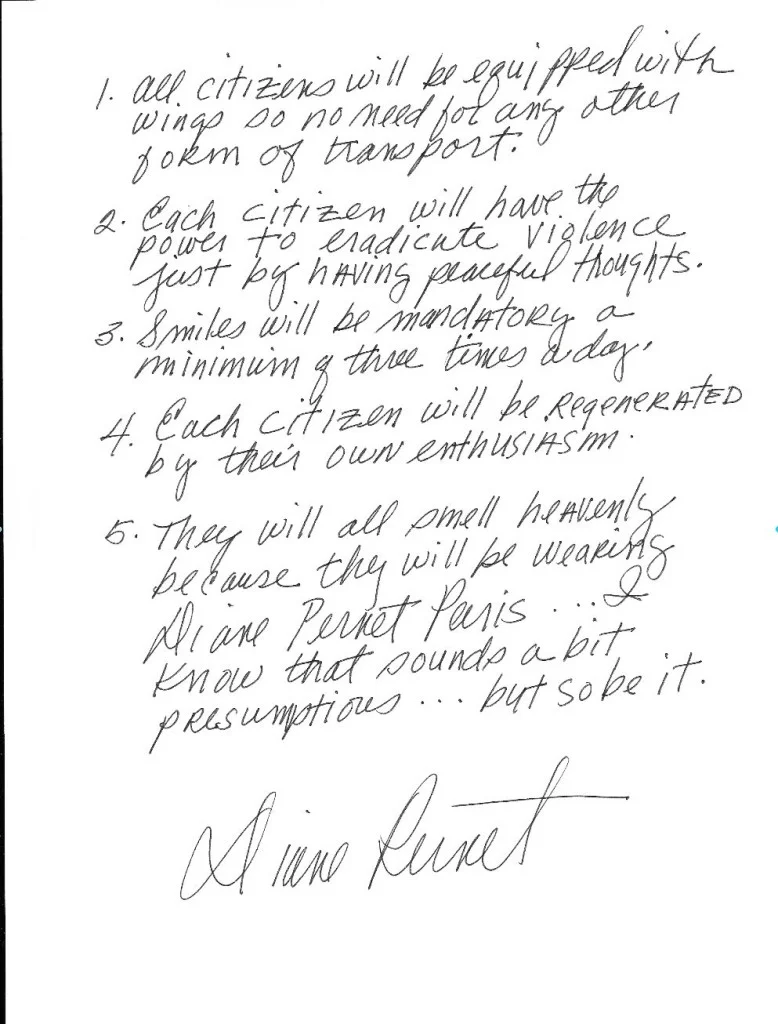 1. All citizens will be equipped with
wings so no need for any other
form of transport.
2. Each citizen will have the
power to eradicate violence
just by having peaceful thoughts.
3. Smiles will be mandatory a
minimum of three times a day.
4. Each citizen will be regenerated
by their own enthusiasm.
5. They will all smell heavenly
because they will be wearing
Diane Pernet Paris ... I
know that sounds a bit
presumptious ... but so be it.
Diane Pernet